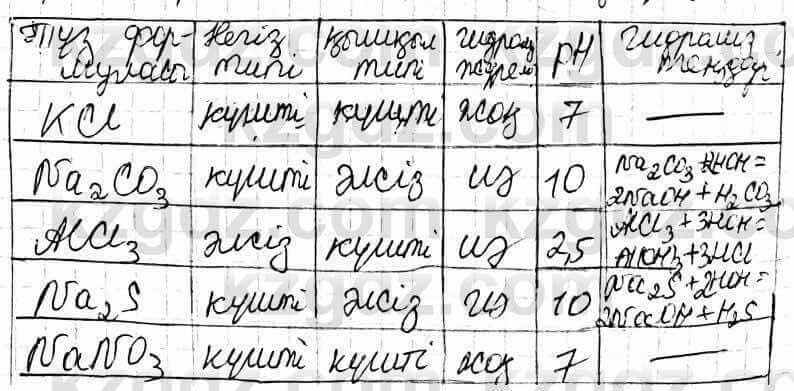 Тұз фор-
муласы
Негіз
типі
қышқыл
типі
гидролиз
жүреді
pH
гидролиз
теңдеуі
KCl күшті күшті жоқ 7 —
Na₂CO₃ күшті әлсіз иә 10
Na₂CO₃ + 2HOH =
2NaOH + H₂CO₃
AlCl₃ әлсіз күшті иә 2,5
AlCl₃ + 3HOH =
AlOH₃ + 3HCl
Na₂S күшті әлсіз иә 10
Na₂S + 2HOH =
2NaOH + H₂S
NaNO₃ күшті күшті жоқ 7 —
kzgdz.com